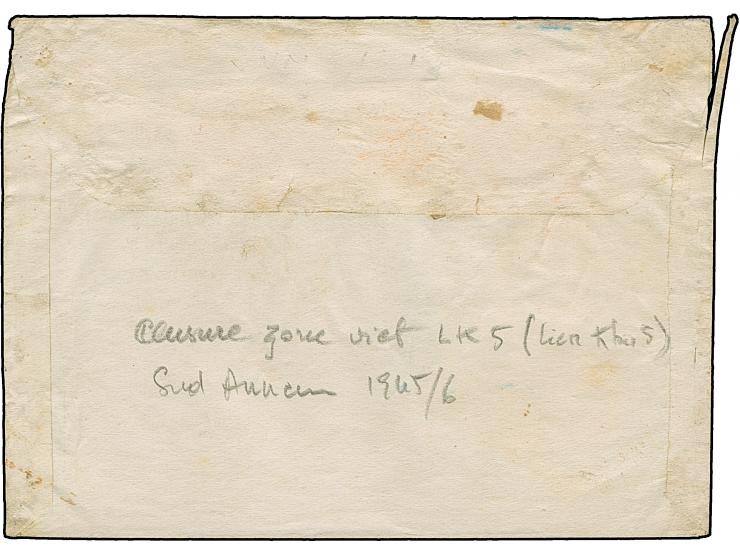 Censure zone viet LK 5 (lien khu 5)
Sud Annam 1945/6